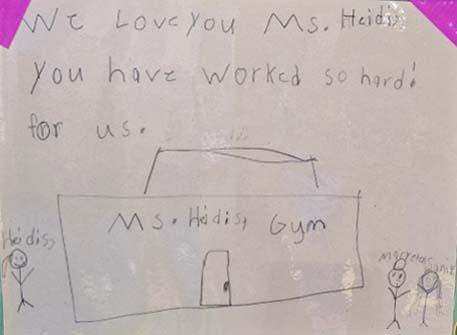 We Love you Ms. Heidi
you have worked so hard!
for us.
Ms. Heidis, Gym
Heidis,